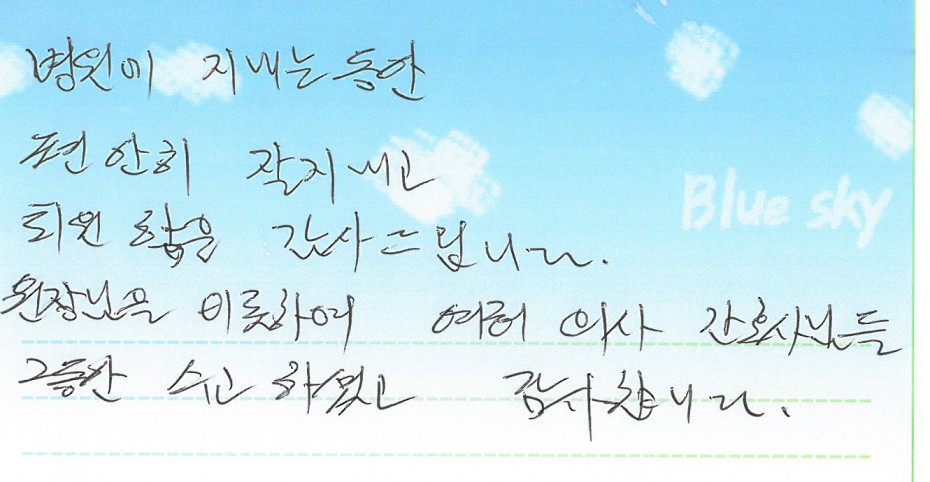 병원이 지내는동안
편안히 잘지내고
퇴원 함을 감사드립니다.
Blue sky
원장님을 비롯하여 여러 의사 간호사님들
그동안 수고 하셨고 감사합니다.